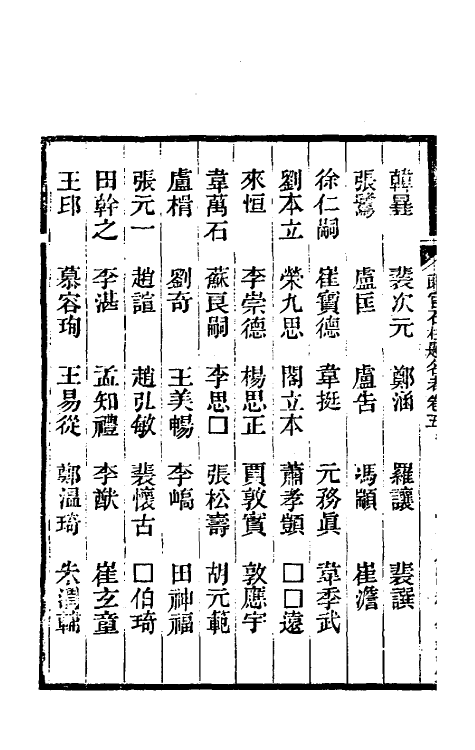 郎官石柱題名考卷五
裴次元 鄭涵 羅讓 裴譔
盧匡 盧告 馮顓 崔澹
徐仁嗣 崔寶德 韋挺 元務眞 韋季武
劉本立 榮九思 閻立本 蕭孝顗 □□遠
來恒 李崇德 楊思正 賈敦實 敦應宇
韋萬石 蘇良嗣 李思□ 張松壽 胡元範
盧楈 劉奇 王美暢 李嶠 田神福
張元一 趙誼 趙弘敏 裴懷古 □伯琦
田幹之 李湛 孟知禮 李猷 崔玄童
王邱 慕容珣 王易從 鄭溫琦 朱渭輔